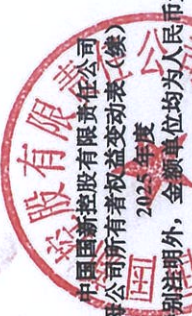 中国国新控股有限责任公司
公司所有者权益变动表（续）
2025年度
别注明外，金额单位均为人民币
股有限责
公
国